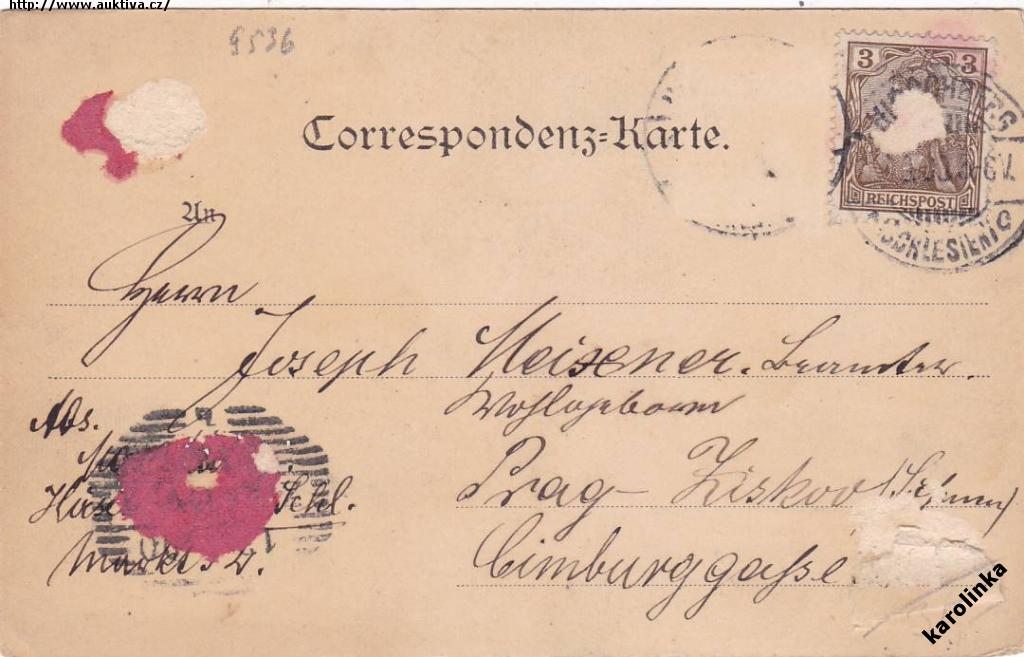 http://www.auktiva.cz/
9536
Correspondenz-Karte.
3 3
REICHSPOST
SCHLESIEN
An
Herrn
Joseph Meixner. Beamter.
Wohlgeborn
Prag- Ziskov
Cimburggasse
Abs.
Schl.
Markt
karolinka